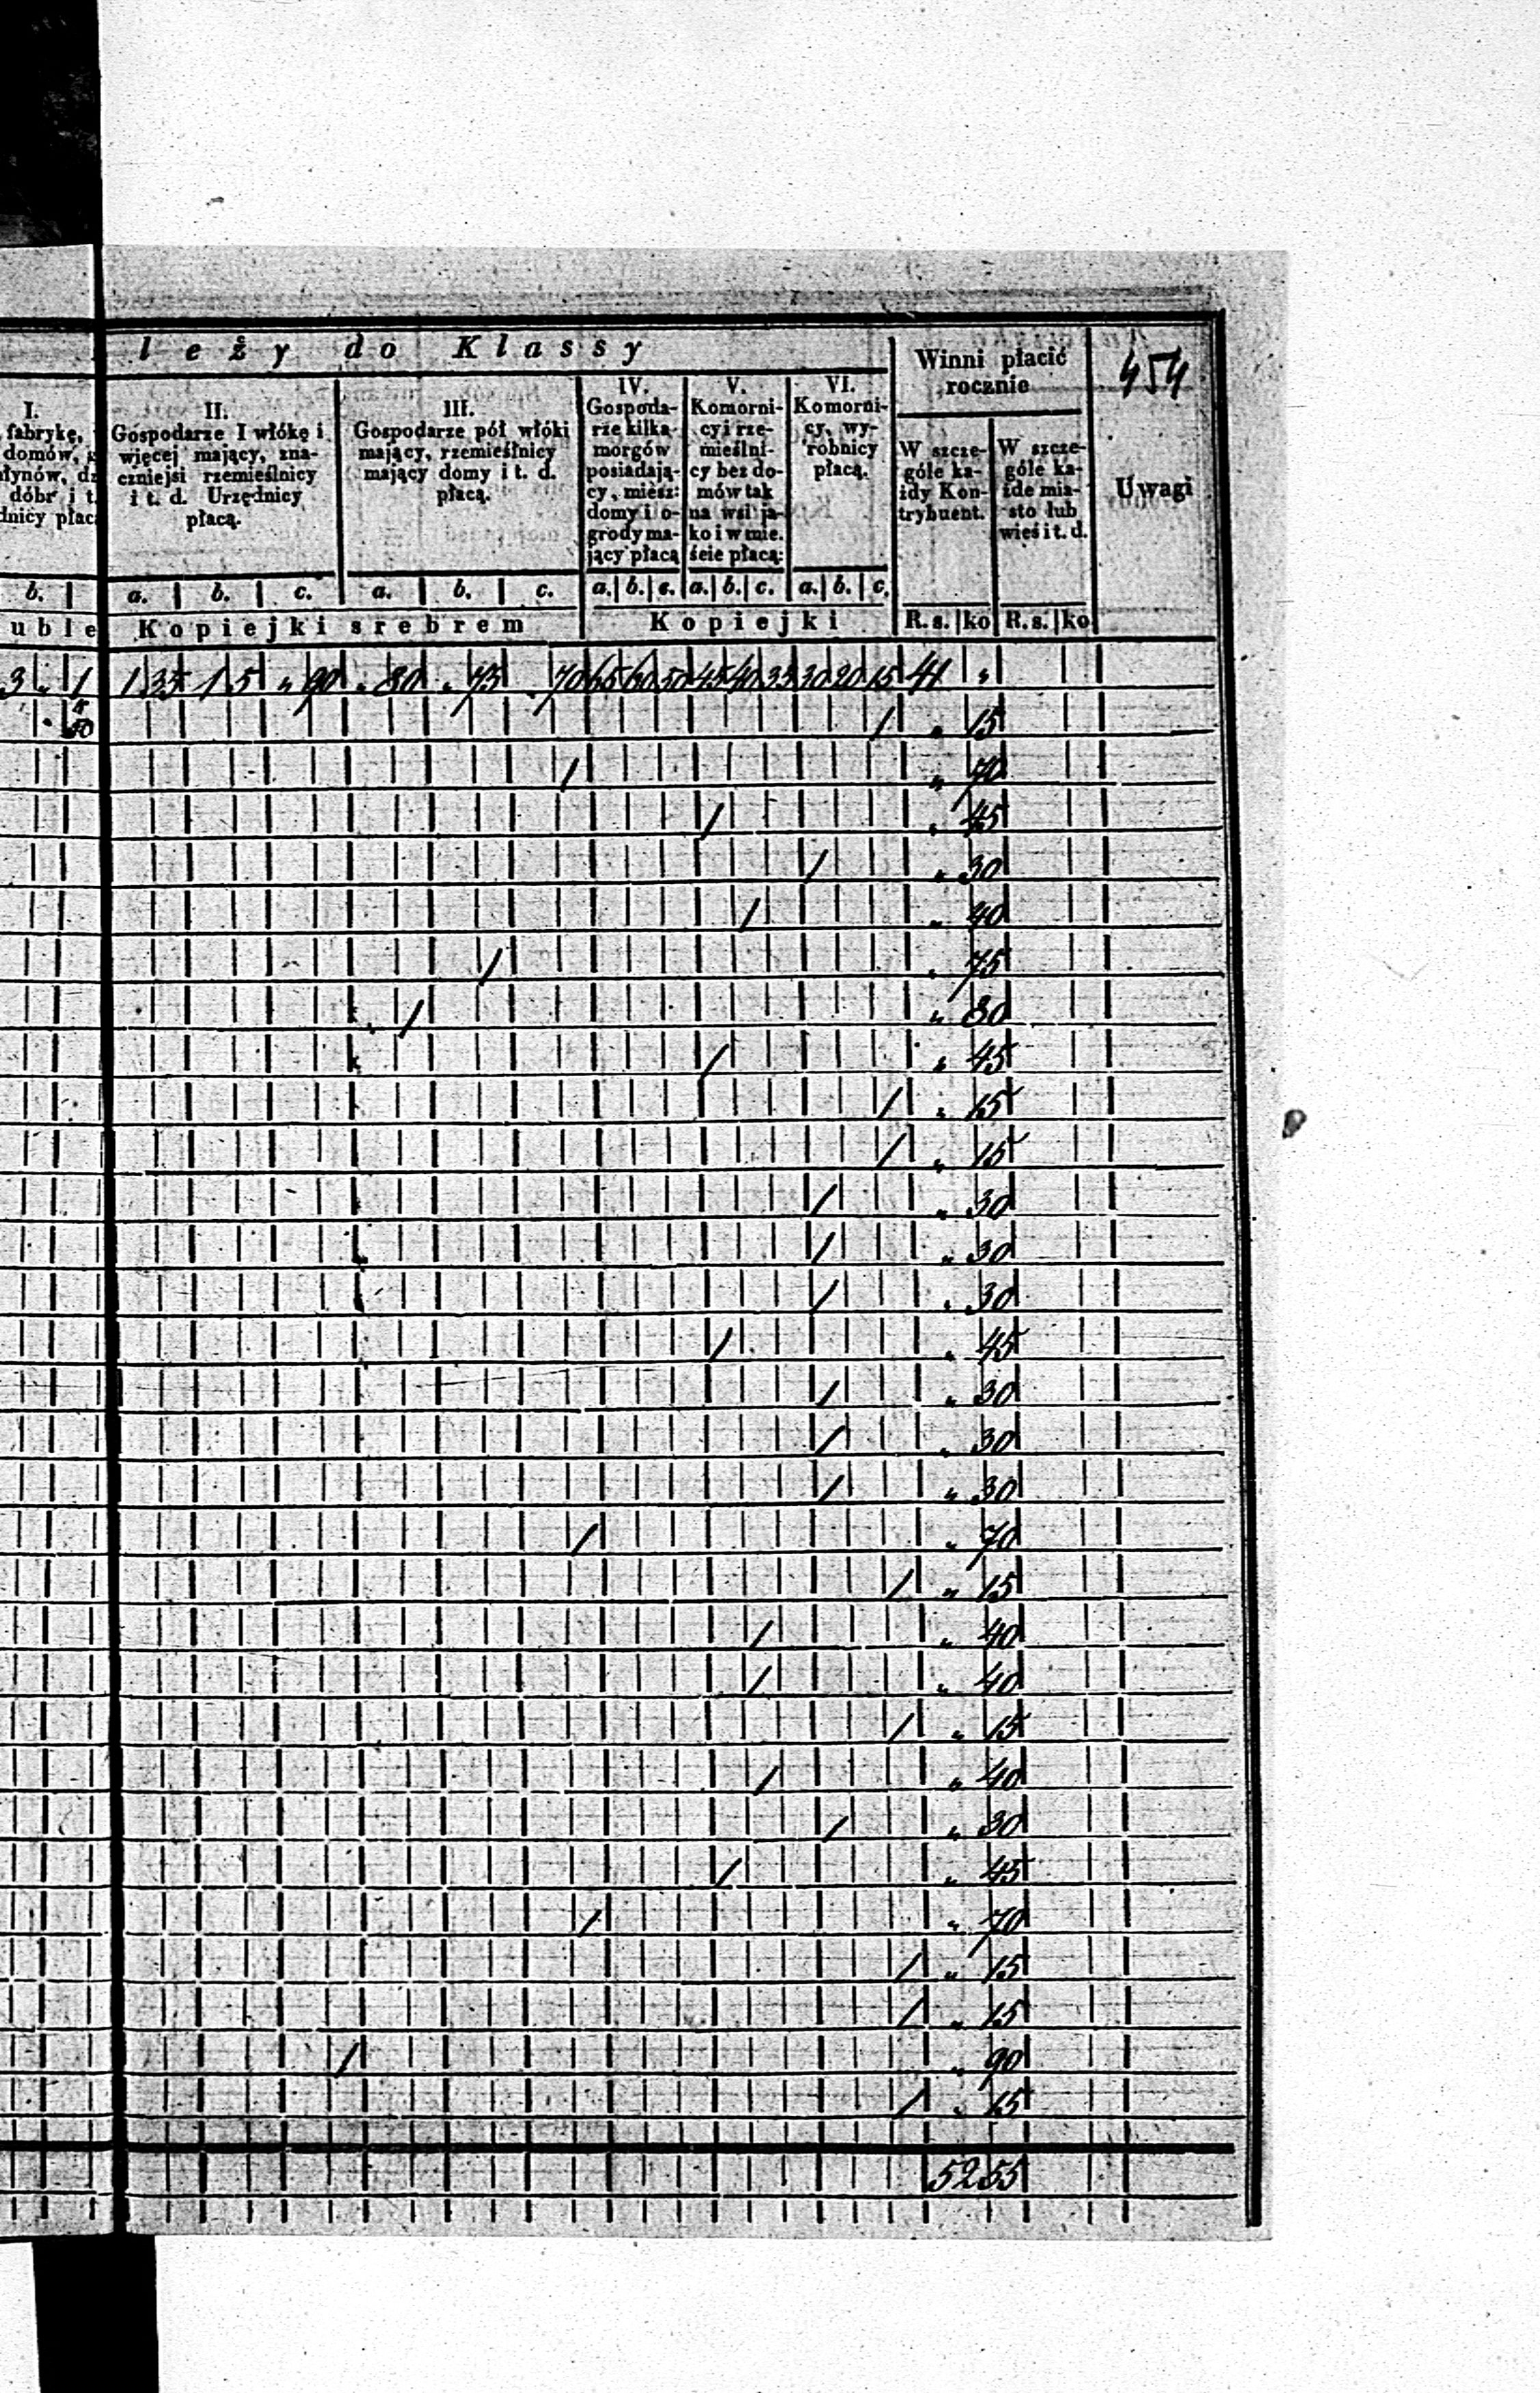 leży do Klassy
Winni płacić rocznie
454
I.
fabrykę,
domów,
łynów,
dóbr i t.
dnicy płac
II.
Gospodarze I włókę i
więcej mający, zna-
czniejsi rzemieślnicy
i t. d. Urzędnicy
płacą.
III.
Gospodarze pół włóki
mający, rzemieślnicy
mający domy i t. d.
płacą.
IV.
Gospoda-
rze kilka
morgów
posiadają-
cy, miesz:
domy i o-
grody ma-
jący płacą
V.
Komorni-
cy i rze-
mieślni-
cy bez do-
mów tak
na wsi ja-
ko i w mie.
ście płacą:
VI.
Komorni-
cy, wy-
robnicy
płacą.
W szcze-
góle ka-
żdy Kon-
trybuent.
W szcze-
góle ka-
żde mia-
sto lub
wieś i t. d.
Uwagi
b. a. b. c. a. b. c. a. b. c. a. b. c. a. b. c.
uble Kopiejki srebrem Kopiejki R. s. ko R. s. ko
3 " 1 1 35 1 5 " 90 " 80 " 75 " 70 65 60 50 45 40 35 30 20 15 41 "
50 / " 15
/ " 70
/ " 45
/ " 30
/ " 40
/ " 75
/ " 80
/ " 45
/ " 15
/ " 15
/ " 30
/ " 30
/ " 30
/ " 45
/ " 30
/ " 30
/ " 30
/ " 70
/ " 15
/ " 40
/ " 40
/ " 15
/ " 40
/ " 30
/ " 45
/ " 70
/ " 15
/ " 15
/ " 90
/ " 15
52 55